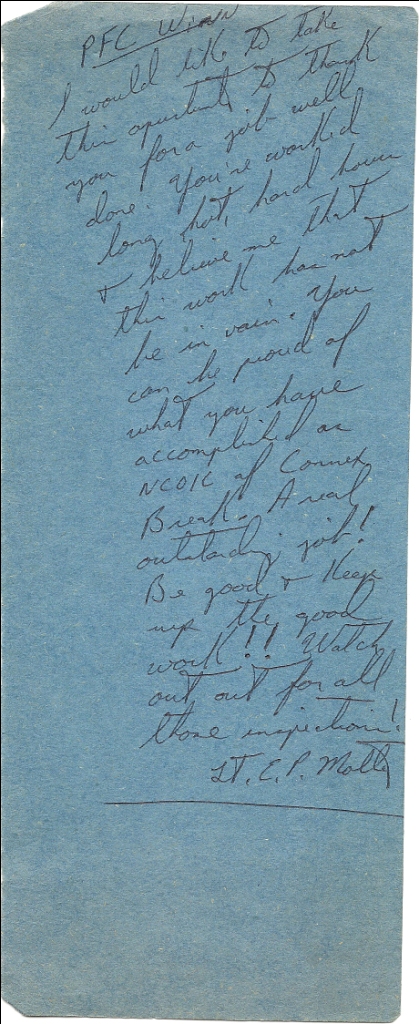 PFC Winn
I would like to take
this oportunity to thank
you for a job well
done. You've worked
long, hot, hard hours
& believe me that
this work has not
be in vain. You
can be proud of
what you have
accomplished as
NCOIC of Connex
Break. A real
outstanding job!
Be good & keep
up the good
work!! Watch
out out for all
those inspections!
LT. E. P. Molly